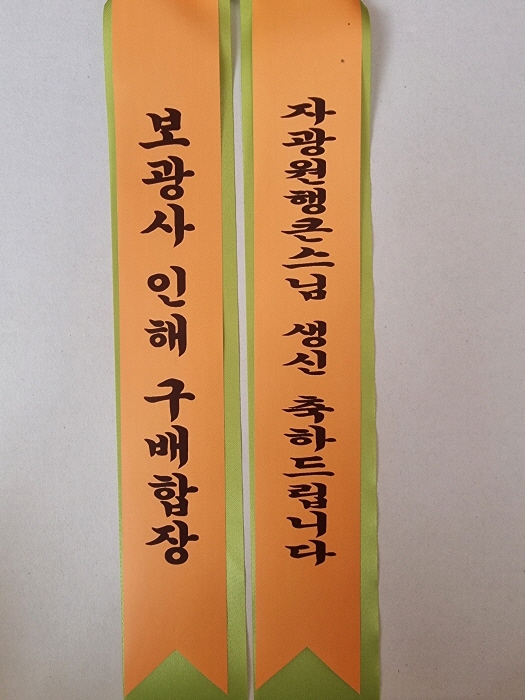 보광사 인해 구배합장
자광원행큰스님 생신 축하드립니다